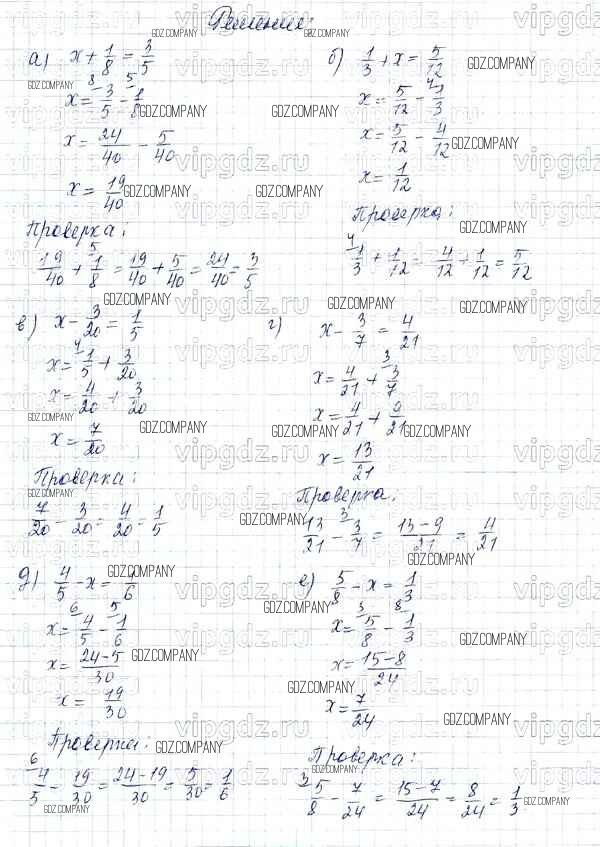 Решение:
а) x + 1/8 = 3/5
x = 3/5 - 1/8
x = 24/40 - 5/40
x = 19/40
Проверка:
19/40 + 1/8 = 19/40 + 5/40 = 24/40 = 3/5
б) 1/3 + x = 5/12
x = 5/12 - 1/3
x = 5/12 - 4/12
x = 1/12
Проверка:
1/3 + 1/12 = 4/12 + 1/12 = 5/12
в) x - 3/20 = 1/5
x = 1/5 + 3/20
x = 4/20 + 3/20
x = 7/20
Проверка:
7/20 - 3/20 = 4/20 = 1/5
г) x - 3/7 = 4/21
x = 4/21 + 3/7
x = 4/21 + 9/21
x = 13/21
Проверка:
13/21 - 3/7 = 13-9/21 = 4/21
д) 4/5 - x = 1/6
x = 4/5 - 1/6
x = 24-5/30
x = 19/30
Проверка:
4/5 - 19/30 = 24-19/30 = 5/30 = 1/6
е) 5/8 - x = 1/3
x = 5/8 - 1/3
x = 15-8/24
x = 7/24
Проверка:
5/8 - 7/24 = 15-7/24 = 8/24 = 1/3
GDZ.COMPANY
vipgdz.ru